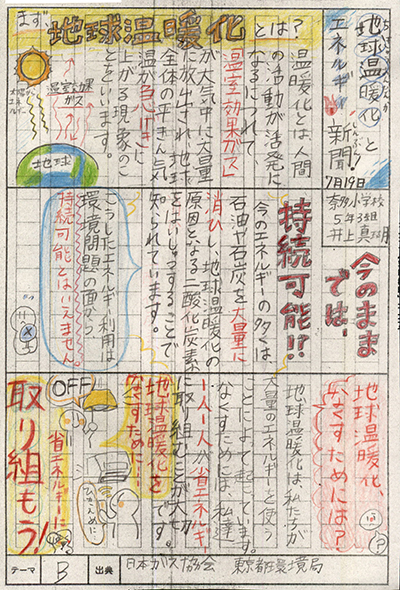 地球温暖化と
エネルギー新聞!
7月19日
5年3組
井上
まず、
地球温暖化とは?
温暖化とは人間
の活動が活発に
なるにつれて
「温室効果ガス」
が大気中に大量
に放出され、地球
全体の平きん気
温が急げきに
上がる現象のこ
とをいいます。
太陽
エネルギー
温室効果
ガス
地球
今のまま
では、
持続可能!!
今のエネルギーの多くは、
石油や石炭を大量に
消ひし、地球温暖化の
原因となる二酸化炭素
をはいしゅつすることで
知られています。
こうしたエネルギー利用は
環境問題の面から、
持続可能とはいえません。
地球温暖化、
なくすためには?
地球温暖化は、私たちが
大量のエネルギーを使う
ことによって起きています。
なくすためには、私達
一人一人が省エネルギー
に取り組むことが大切
地球温暖化を
なくすために!
OFF
ひかえめに
省エネルギーに
取り組もう!
テーマ
B
出典
日本ガス協会 東京都環境局